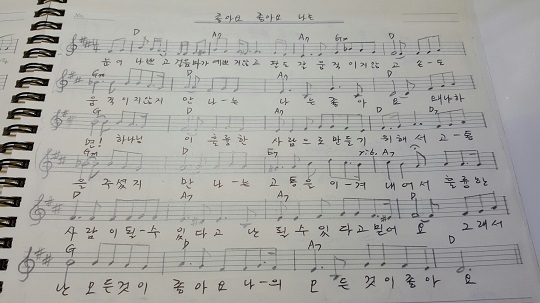 좋아요 좋아요 나는
D A7 D A7 Gm D
눈이 나쁘고 걸음마가 예쁘지않고 팔도 잘 움직이지않고 손도
Gm D A7 D
움직이지않지 만 나는 나는 좋아 요 왜냐하
G D A7 D D7
면! 하나님 이 훌륭한 사람으로 만들기 위해서 고통
Gm D E7 A7
을 주셨지 만 나는 고통을 이겨 내어서 훌륭한
D A7 D A7 D
사람이 될수 있다고 난 될 수 있다고 믿어 요 그래서
G D A7 D
난 모든것이 좋아요 나의 모든것이 좋아 요